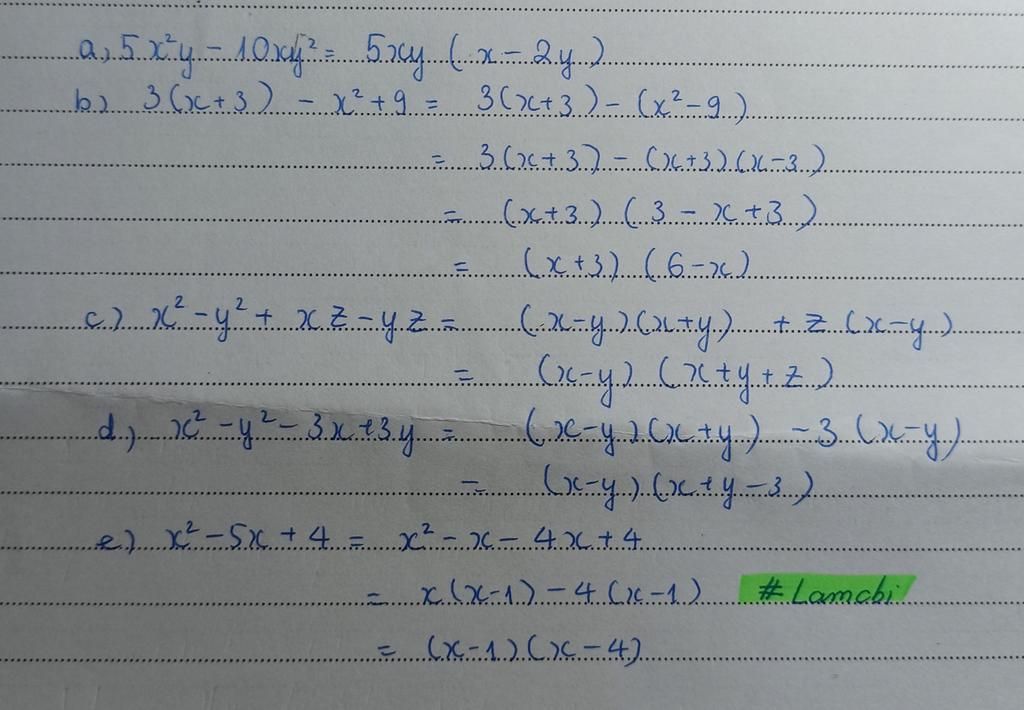 a, 5x²y - 10xy² = 5xy (x - 2y)
b) 3(x+3) - x² + 9 = 3(x+3) - (x² - 9)
= 3(x+3) - (x+3)(x-3)
= (x+3) (3 - x + 3)
= (x+3) (6-x)
c) x² - y² + xz - yz = (x-y)(x+y) + z(x-y)
= (x-y) (x+y+z)
d, x² - y² - 3x + 3y = (x-y)(x+y) - 3(x-y)
= (x-y)(x+y-3)
e) x² - 5x + 4 = x² - x - 4x + 4
= x(x-1) - 4(x-1) #Lamchi
= (x-1)(x-4)